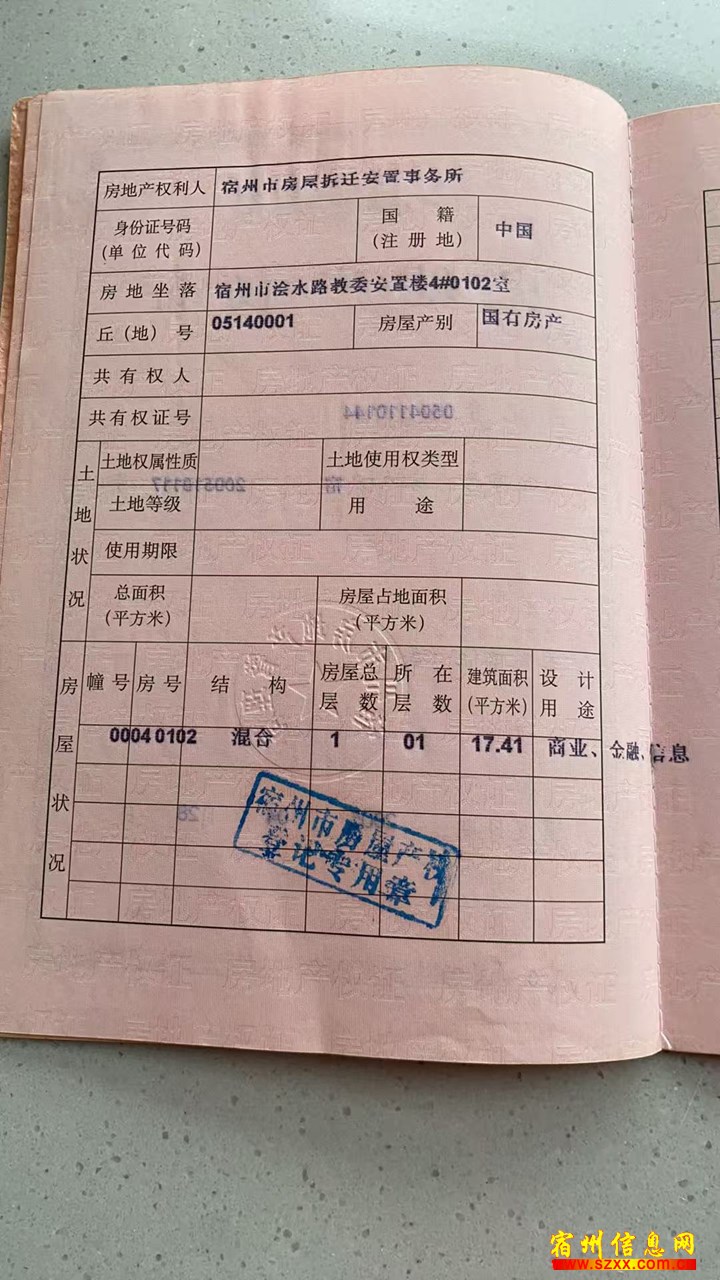 房地产权利人 宿州市房屋拆迁安置事务所
身份证号码 国籍 中国
(单位代码) (注册地)
房地坐落 宿州市浍水路教委安置楼4#0102室
丘(地)号 05140001 房屋产别 国有房产
共有权人
共有权证号
土地状况
土地权属性质 土地使用权类型
土地等级 用途
使用期限
总面积 房屋占地面积
(平方米) (平方米)
房屋状况
幢号 房号 结构 房屋总层数 所在层数 建筑面积(平方米) 设计用途
0004 0102 混合 1 01 17.41 商业、金融、信息
宿州市房屋产权
登记专用章
宿州信息网
www.szxx.com.cn